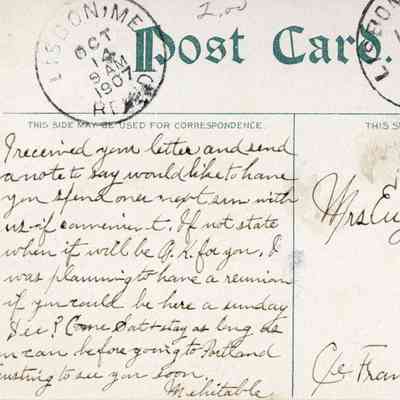 2.00
LISBON, ME.
OCT
14
9 AM
1907
REC'D
Post Card.
LISBON
THIS SIDE MAY BE USED FOR CORRESPONDENCE.
THIS S
I received your letter and send
a note to say would like to have
you spend over next sun with
us - if convenient. If not state
when it will be O.K. for you. I
was planning to have a reunion
if you could be here a sunday
See? Come Sat + stay as long as
can before going to Portland
trusting to see you soon.
Mehitable
Mrs Eug
c/o Fran